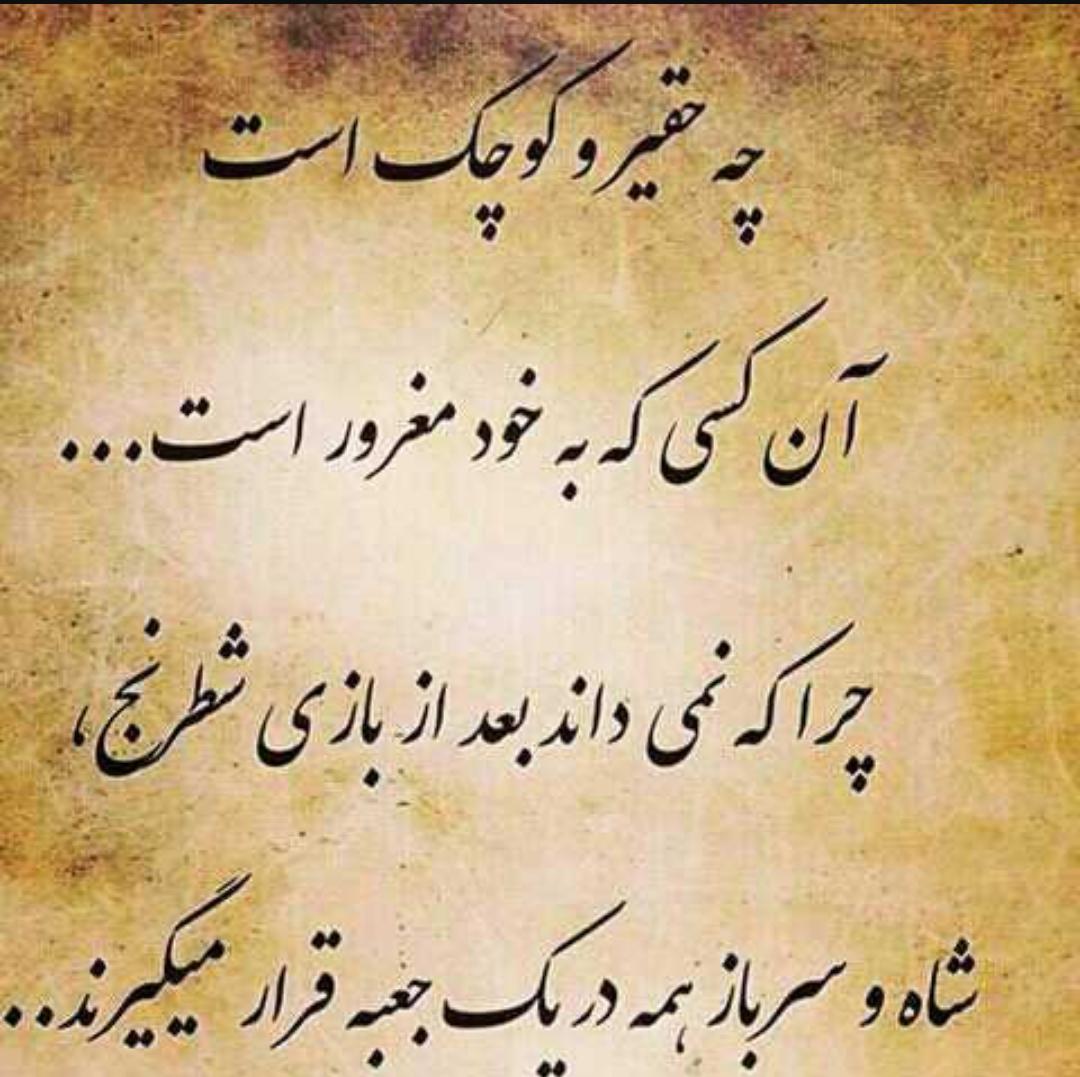 چه حقیر و کوچک است
آن کسی که به خود مغرور است...
چرا که نمی داند بعد از بازی شطرنج،
شاه و سرباز همه در یک جعبه قرار میگیرند..